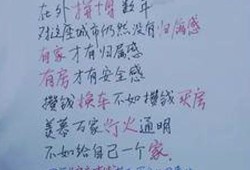 在外拼搏数年
对这座城市仍然没有归属感
有家才有归属感
有房才有安全感
攒钱换车不如攒钱买房
羡慕万家灯火通明
不如给自己一个家.